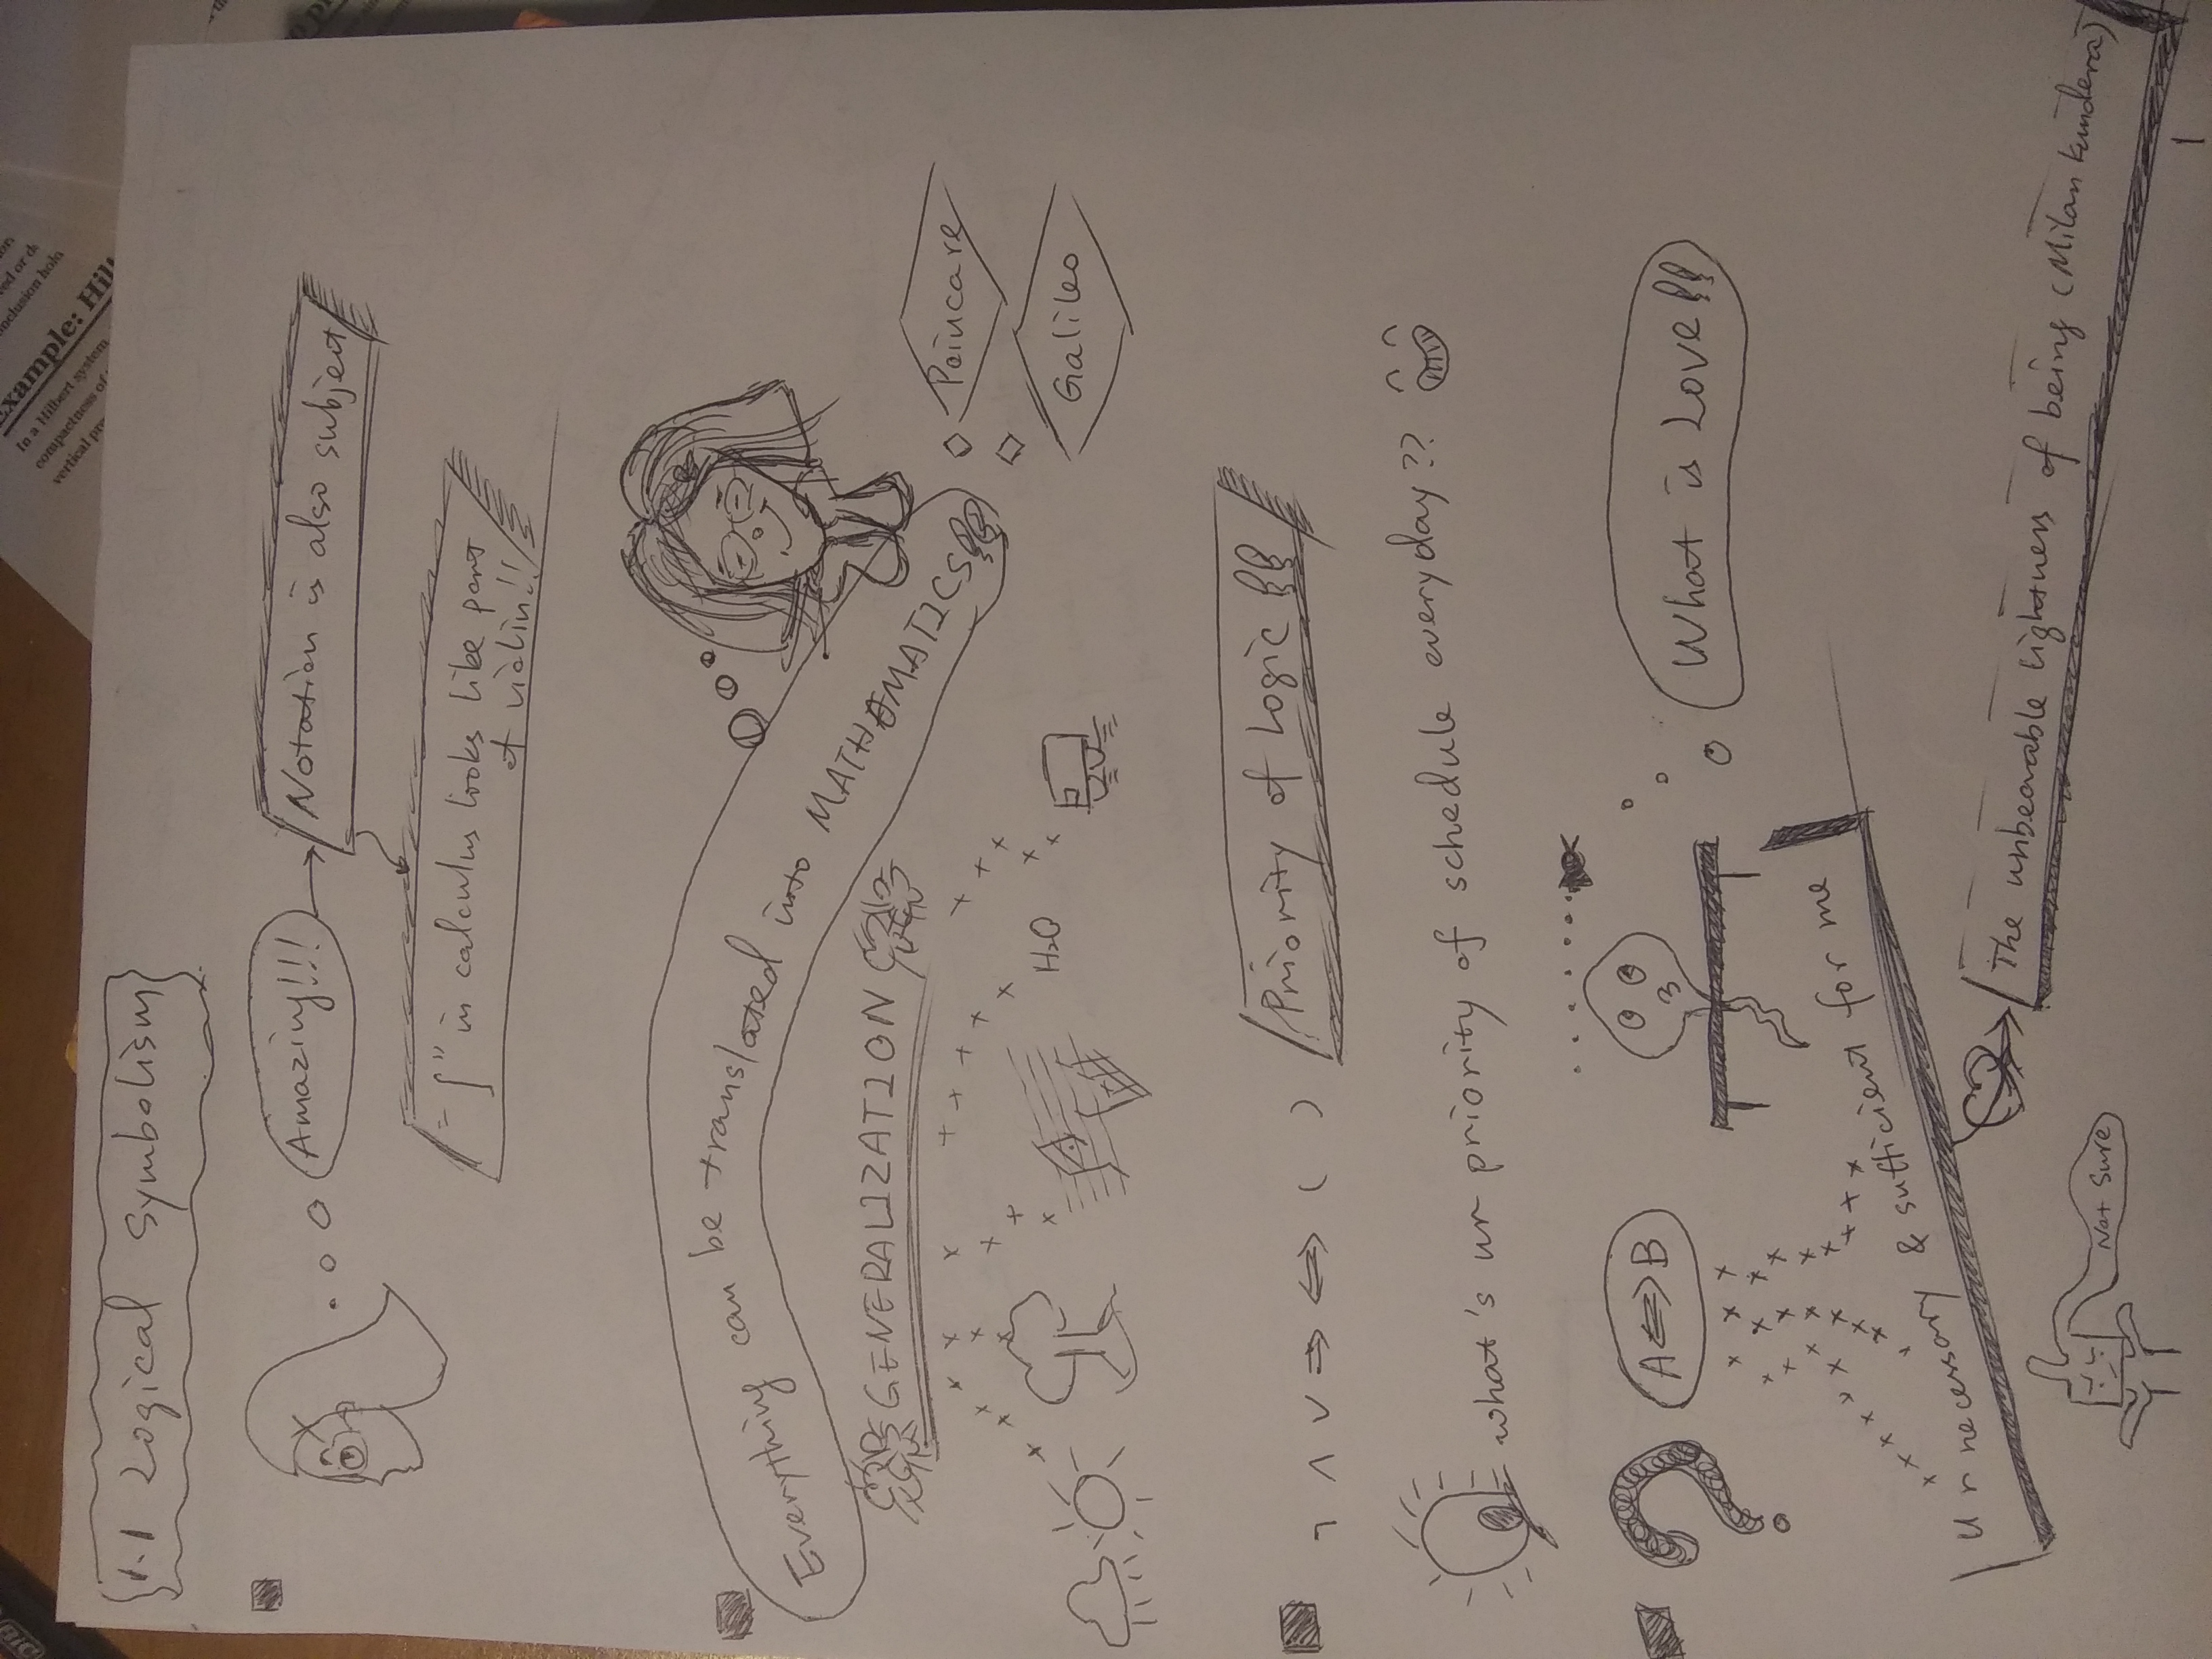 BIC
Example: Hil
In a Hilbert system
compactness of
vertical pre
1.1 Logical Symbolism
Amazing!!!
Notation is also subject
"∫" in calculus looks like part
of violin!!
Everything can be translated into MATHEMATICS!!
GENERALIZATION
H2O
Poincare
Galileo
¬ ∧ ∨ ⇒ ⇔ ( )
Priority of Logic!!
what's ur priority of schedule everyday??
? A⇔B
What is Love!!
U r necessary & sufficient for me
The unbearable lightness of being (Milan Kundera)
Not Sure
1